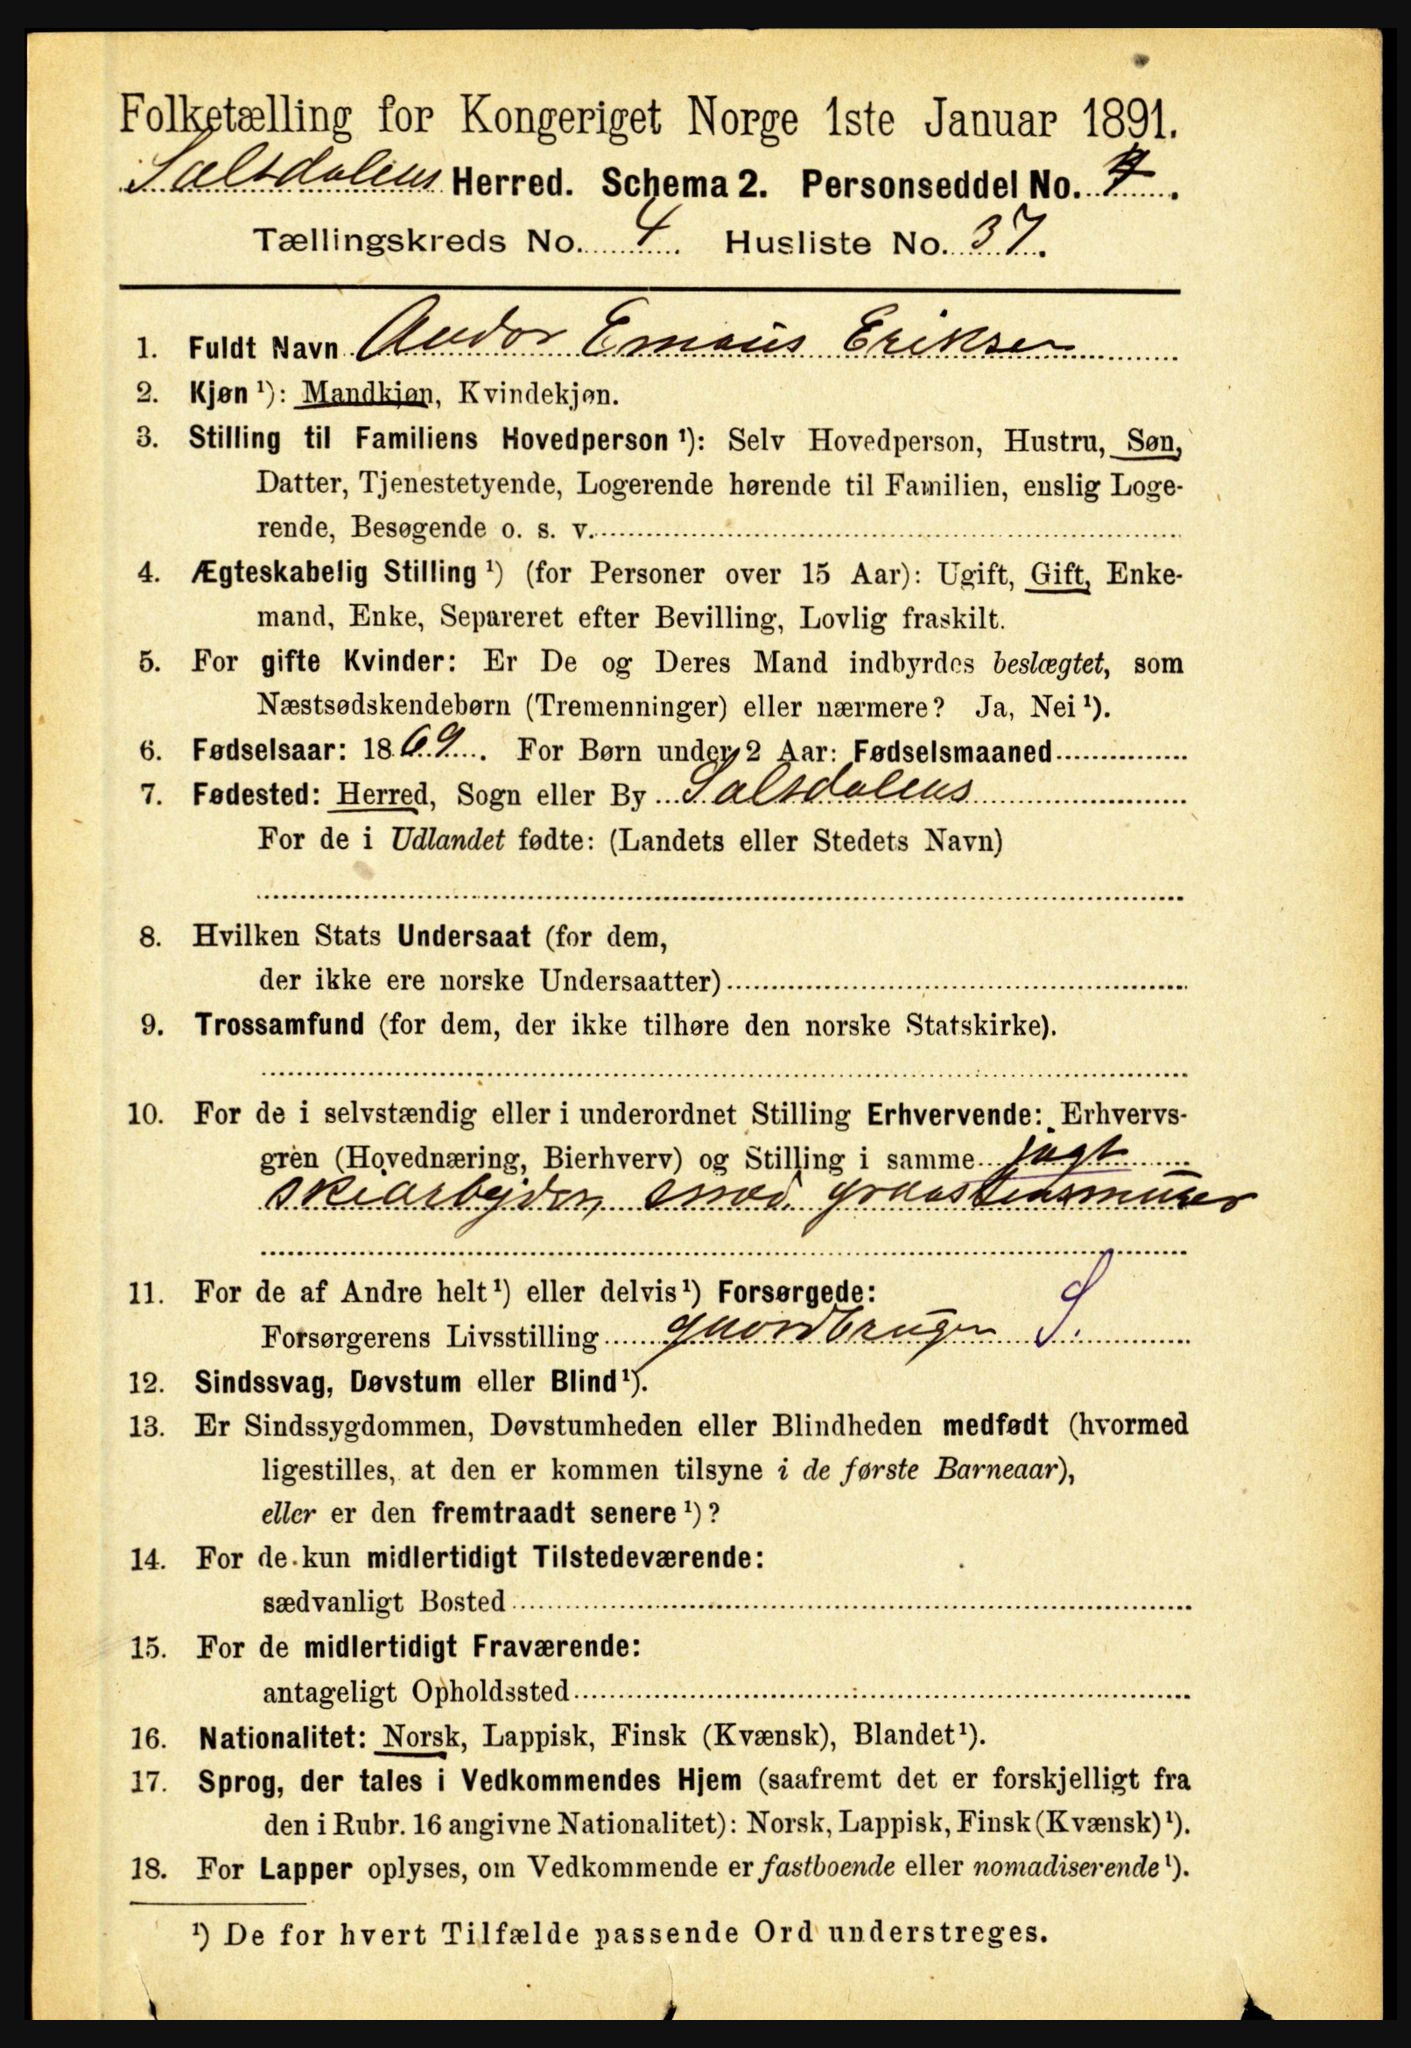 Folketælling for Kongeriget Norge 1ste Januar 1891.
Saltdalens Herred. Schema 2. Personseddel No.
Tællingskreds No. 4 Husliste No. 37.
1. Fuldt Navn Andor Emaus Eriksen
2. Kjøn ¹): Mandkjøn, Kvindekjøn.
3. Stilling til Familiens Hovedperson ¹): Selv Hovedperson, Hustru, Søn,
Datter, Tjenestetyende, Logerende hørende til Familien, enslig Loge-
rende, Besøgende o. s. v.
4. Ægteskabelig Stilling ¹) (for Personer over 15 Aar): Ugift, Gift, Enke-
mand, Enke, Separeret efter Bevilling, Lovlig fraskilt.
5. For gifte Kvinder: Er De og Deres Mand indbyrdes beslægtet, som
Næstsødskendebørn (Tremenninger) eller nærmere? Ja, Nei ¹).
6. Fødselsaar: 1869. For Børn under 2 Aar: Fødselsmaaned
7. Fødested: Herred, Sogn eller By Saltdalens
For de i Udlandet fødte: (Landets eller Stedets Navn)
8. Hvilken Stats Undersaat (for dem,
der ikke ere norske Undersaatter)
9. Trossamfund (for dem, der ikke tilhøre den norske Statskirke).
10. For de i selvstændig eller i underordnet Stilling Erhvervende: Erhvervs-
gren (Hovednæring, Bierhverv) og Stilling i samme jagt
skiarbejder, smed, graastensmurer
11. For de af Andre helt ¹) eller delvis ¹) Forsørgede:
Forsørgerens Livsstilling gaardbruger S.
12. Sindssvag, Døvstum eller Blind ¹).
13. Er Sindssygdommen, Døvstumheden eller Blindheden medfødt (hvormed
ligestilles, at den er kommen tilsyne i de første Barneaar),
eller er den fremtraadt senere ¹)?
14. For de kun midlertidigt Tilstedeværende:
sædvanligt Bosted
15. For de midlertidigt Fraværende:
antageligt Opholdssted
16. Nationalitet: Norsk, Lappisk, Finsk (Kvænsk), Blandet ¹).
17. Sprog, der tales i Vedkommendes Hjem (saafremt det er forskjelligt fra
den i Rubr. 16 angivne Nationalitet): Norsk, Lappisk, Finsk (Kvænsk) ¹).
18. For Lapper oplyses, om Vedkommende er fastboende eller nomadiserende ¹).
¹) De for hvert Tilfælde passende Ord understreges.